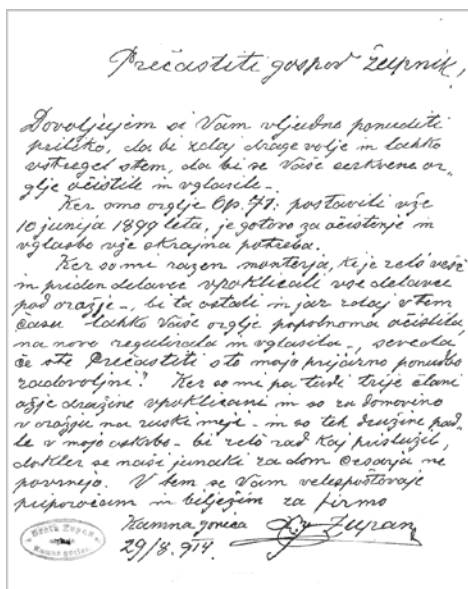 Prečastiti gospod Župnik!
Dovoljujem si Vam vljudno ponuditi
priliko, da bi zdaj drage volje in lahko
vstregel s tem, da bi se Vaše cerkvene or-
glje očistile in vglasile.
Ker smo orglje Op. 77: postavili vže
10 junija 1899 leta, je gotovo za očistenje in
vglasbo vže skrajna potreba.
Ker so mi razen monterja, ki je zelo vešč
in priden delavec vpoklicali vse delavce
pod orožje -, bi ta ostali in jaz zdaj v tem
času lahko Vaše orglje popolnoma očistila
na novo regulirala in vglasila -, seveda,
če ste Prečastiti s to mojo prijazno ponudbo
zadovoljni? Ker so mi pa tudi trije člani
ožje družine vpoklicani in so za domovino
v orožju na ruski meji - in so teh družine pad-
le v mojo oskrbo - bi zelo rad kaj prislužil,
dokler se naši junaki za dom Cesarja ne
povrnejo. V tem se Vam velespoštovaje
priporočam in bilježim za firmo
Kamna gorica Župan
29/8. 914.
Bratje Zupan
Kamna gorica